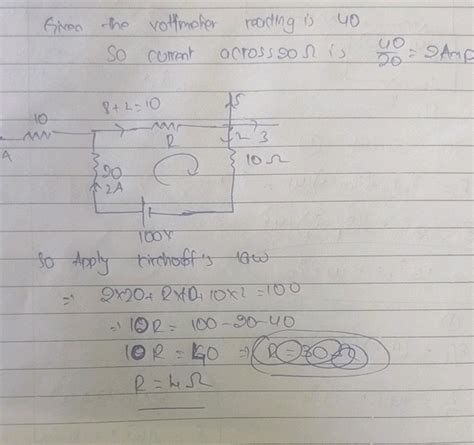 Given the voltmeter reading is 40
So current across 20 Ω is 40/20 = 2Amp
8+2=10
5
10
R
2 3
A
20
10 Ω
2A
100V
So Apply kirchoff's law
⇒ 2×20 + R×10 + 10×2 = 100
⇒ 10R = 100-20-40
10R = 40 ⇒
R = 4 Ω